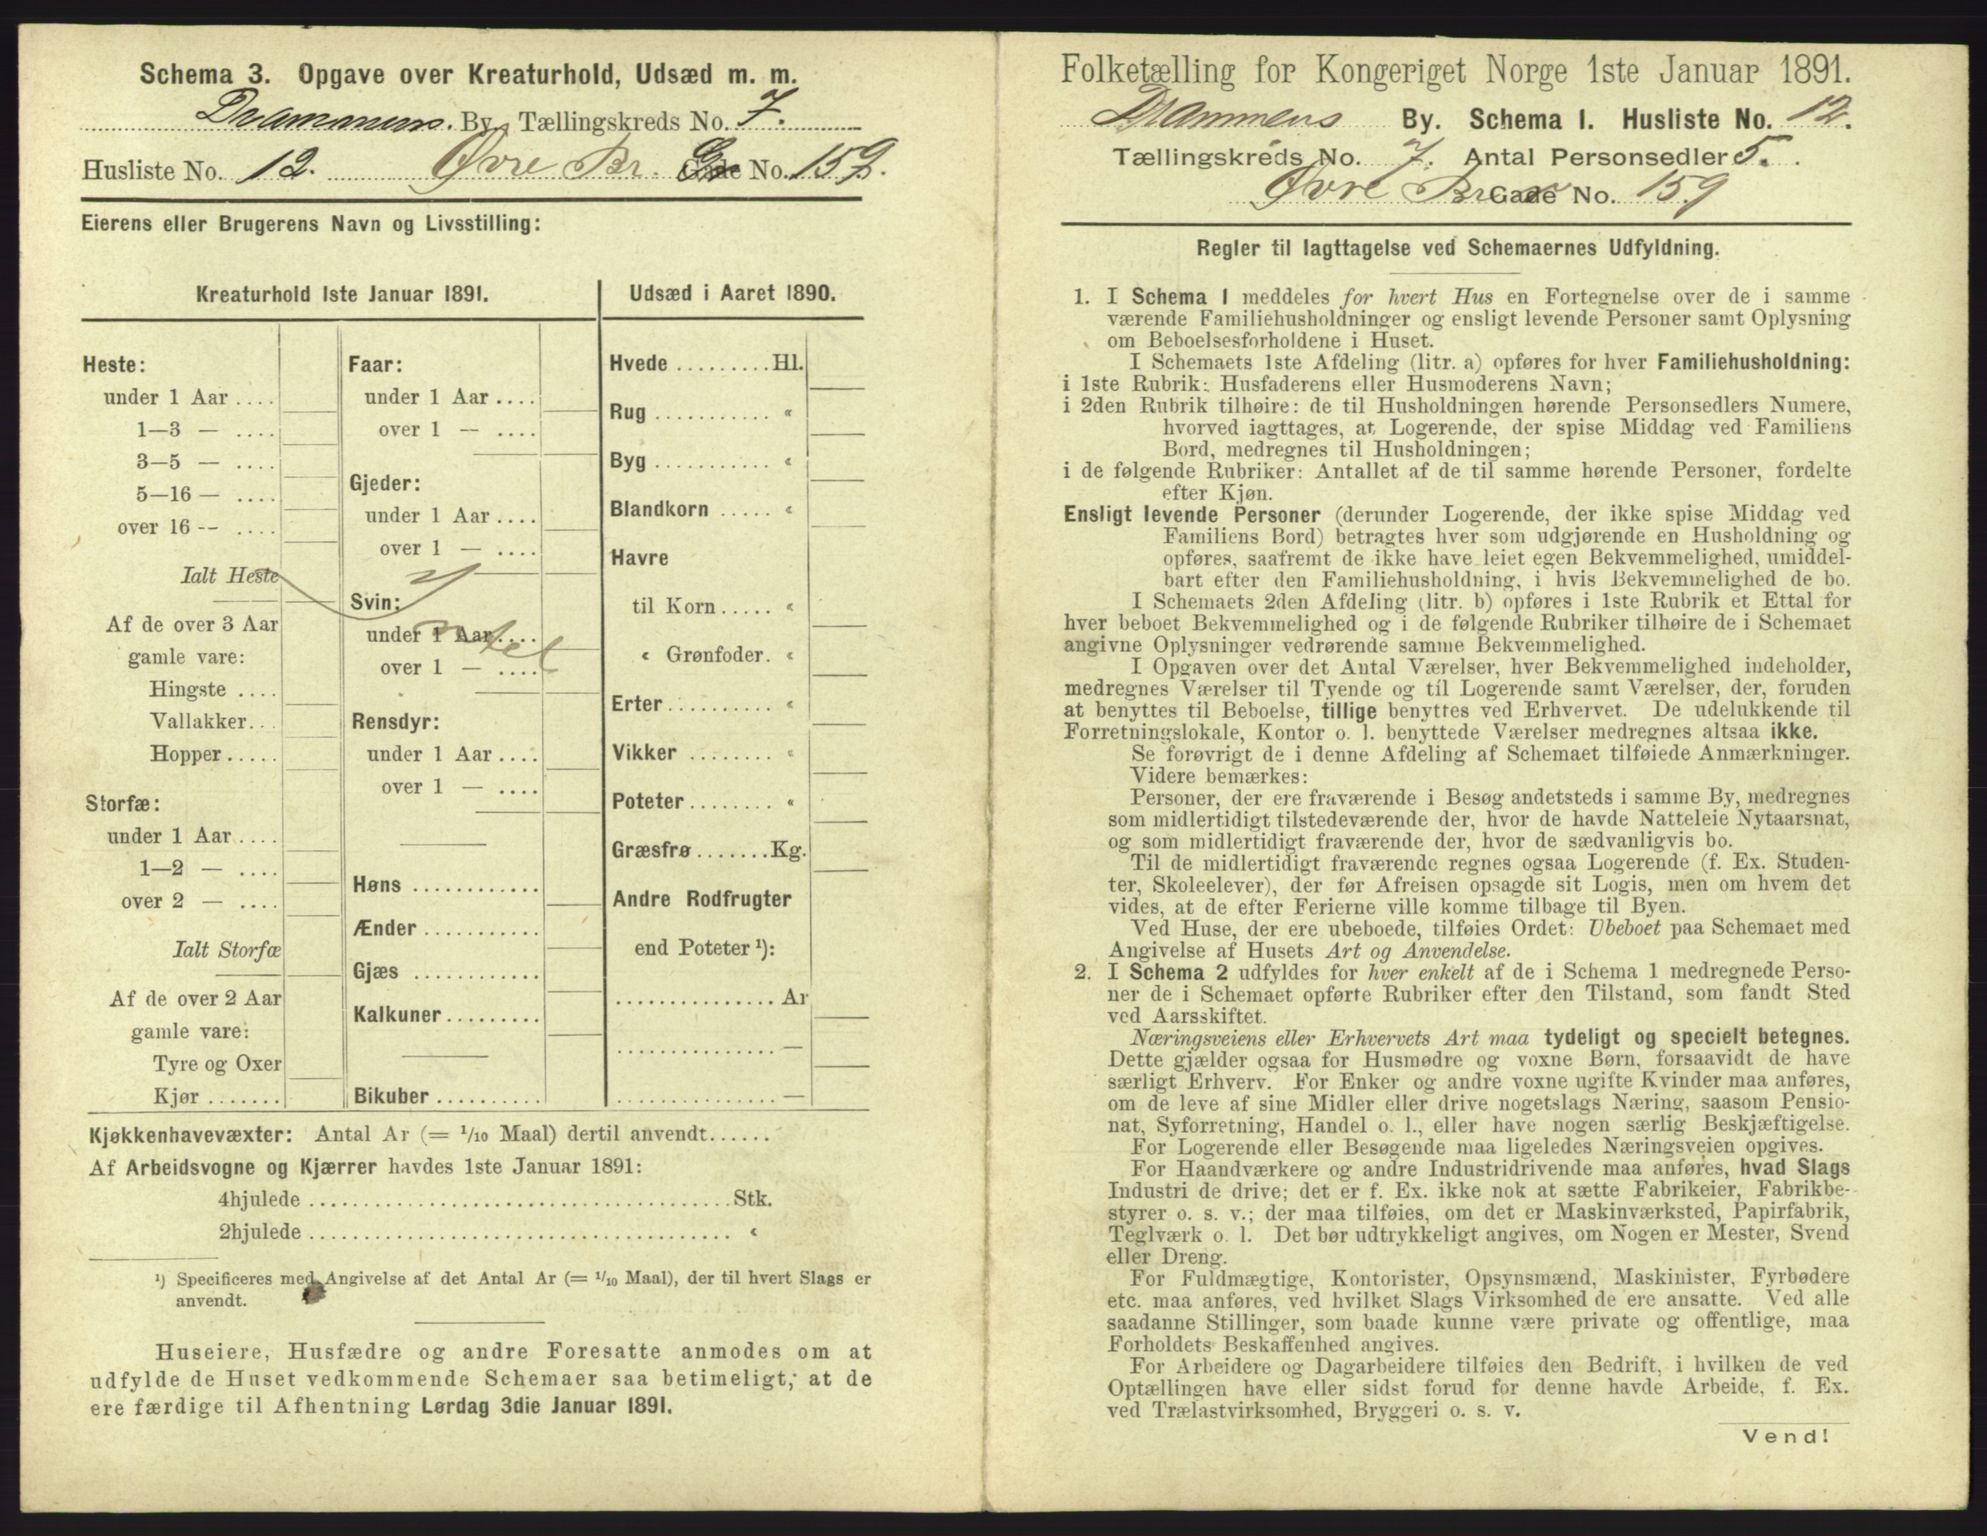 Schema 3. Opgave over Kreaturhold, Udsæd m. m.
Drammens. By, Tællingskreds No. 7.
Husliste No. 12. Øvre Br. Gade No. 159.
Eierens eller Brugerens Navn og Livsstilling:
Kreaturhold 1ste Januar 1891.
Heste:
under 1 Aar ....
1—3 — ....
3—5 — ....
5—16 — ....
over 16 -- ....
Ialt Heste
Af de over 3 Aar
gamle vare:
Hingste ....
Vallakker...
Hopper.....
Storfæ:
under 1 Aar ....
1—2 — ....
over 2 — ....
Ialt Storfæ
Af de over 2 Aar
gamle vare:
Tyre og Oxer
Kjør .......
Faar:
under 1 Aar ....
over 1 — ....
Gjeder:
under 1 Aar ....
over 1 — ....
Svin:
under 1 Aar ....
over 1 — ....
Rensdyr:
under 1 Aar ....
over 1 — ....
Høns ............
Ænder ...........
Gjæs ............
Kalkuner.........
Bikuber ..........
Udsæd i Aaret 1890.
Hvede .........Hl.
Rug ........... «
Byg ........... «
Blandkorn ..... «
Havre
til Korn ..... «
« Grønfoder. «
Erter.......... «
Vikker ........ «
Poteter........ «
Græsfrø .......Kg.
Andre Rodfrugter
end Poteter ¹):
............... Ar
............... —
............... —
Kjøkkenhavevæxter: Antal Ar (= 1/10 Maal) dertil anvendt......
Af Arbeidsvogne og Kjærrer havdes 1ste Januar 1891:
4hjulede ....................................... Stk.
2hjulede ....................................... «
¹) Specificeres med Angivelse af det Antal Ar (= 1/10 Maal), der til hvert Slags er
anvendt.
Huseiere, Husfædre og andre Foresatte anmodes om at
udfylde de Huset vedkommende Schemaer saa betimeligt, at de
ere færdige til Afhentning Lørdag 3die Januar 1891.
Folketælling for Kongeriget Norge 1ste Januar 1891.
Drammens By. Schema 1. Husliste No. 12.
Tællingskreds No. 7. Antal Personsedler 5.
Øvre Br Gade No. 159
Regler til Iagttagelse ved Schemaernes Udfyldning.
1. I Schema 1 meddeles for hvert Hus en Fortegnelse over de i samme
værende Familiehusholdninger og ensligt levende Personer samt Oplysning
om Beboelsesforholdene i Huset.
I Schemaets 1ste Afdeling (litr. a) opføres for hver Familiehusholdning:
i 1ste Rubrik: Husfaderens eller Husmoderens Navn;
i 2den Rubrik tilhøire: de til Husholdningen hørende Personsedlers Numere,
hvorved iagttages, at Logerende, der spise Middag ved Familiens
Bord, medregnes til Husholdningen;
i de følgende Rubriker: Antallet af de til samme hørende Personer, fordelte
efter Kjøn.
Ensligt levende Personer (derunder Logerende, der ikke spise Middag ved
Familiens Bord) betragtes hver som udgjørende en Husholdning og
opføres, saafremt de ikke have leiet egen Bekvemmelighed, umiddel-
bart efter den Familiehusholdning, i hvis Bekvemmelighed de bo.
I Schemaets 2den Afdeling (litr. b) opføres i 1ste Rubrik et Ettal for
hver beboet Bekvemmelighed og i de følgende Rubriker tilhøire de i Schemaet
angivne Oplysninger vedrørende samme Bekvemmelighed.
I Opgaven over det Antal Værelser, hver Bekvemmelighed indeholder,
medregnes Værelser til Tyende og til Logerende samt Værelser, der, foruden
at benyttes til Beboelse, tillige benyttes ved Erhvervet. De udelukkende til
Forretningslokale, Kontor o. l. benyttede Værelser medregnes altsaa ikke.
Se forøvrigt de i denne Afdeling af Schemaet tilføiede Anmærkninger.
Videre bemærkes:
Personer, der ere fraværende i Besøg andetsteds i samme By, medregnes
som midlertidigt tilstedeværende der, hvor de havde Natteleie Nytaarsnat,
og som midlertidigt fraværende der, hvor de sædvanligvis bo.
Til de midlertidigt fraværende regnes ogsaa Logerende (f. Ex. Studen-
ter, Skoleelever), der før Afreisen opsagde sit Logis, men om hvem det
vides, at de efter Ferierne ville komme tilbage til Byen.
Ved Huse, der ere ubeboede, tilføies Ordet: Ubeboet paa Schemaet med
Angivelse af Husets Art og Anvendelse.
2. I Schema 2 udfyldes for hver enkelt af de i Schema 1 medregnede Perso-
ner de i Schemaet opførte Rubriker efter den Tilstand, som fandt Sted
ved Aarsskiftet.
Næringsveiens eller Erhvervets Art maa tydeligt og specielt betegnes.
Dette gjælder ogsaa for Husmødre og voxne Børn, forsaavidt de have
særligt Erhverv. For Enker og andre voxne ugifte Kvinder maa anføres,
om de leve af sine Midler eller drive nogetslags Næring, saasom Pensio-
nat, Syforretning, Handel o. l., eller have nogen særlig Beskjæftigelse.
For Logerende eller Besøgende maa ligeledes Næringsveien opgives.
For Haandværkere og andre Industridrivende maa anføres, hvad Slags
Industri de drive; det er f. Ex. ikke nok at sætte Fabrikeier, Fabrikbe-
styrer o. s. v.; der maa tilføies, om det er Maskinværksted, Papirfabrik,
Teglværk o. l. Det bør udtrykkeligt angives, om Nogen er Mester, Svend
eller Dreng.
For Fuldmægtige, Kontorister, Opsynsmænd, Maskinister, Fyrbødere
etc. maa anføres, ved hvilket Slags Virksomhed de ere ansatte. Ved alle
saadanne Stillinger, som baade kunne være private og offentlige, maa
Forholdets Beskaffenhed angives.
For Arbeidere og Dagarbeidere tilføies den Bedrift, i hvilken de ved
Optællingen have eller sidst forud for denne havde Arbeide, f. Ex.
ved Trælastvirksomhed, Bryggeri o. s. v.
Vend!